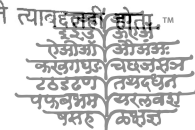 नहीं होता.. ™
इ ई उ ऊ ए अ
ऐ ओ औ ओ अं अः
क ख ग घ ङ च छ ज झ ञ
ट ठ ड ढ ण त थ द ध न
प फ ब भ म य र ल व श
ष स ह ळ क्ष ज्ञ